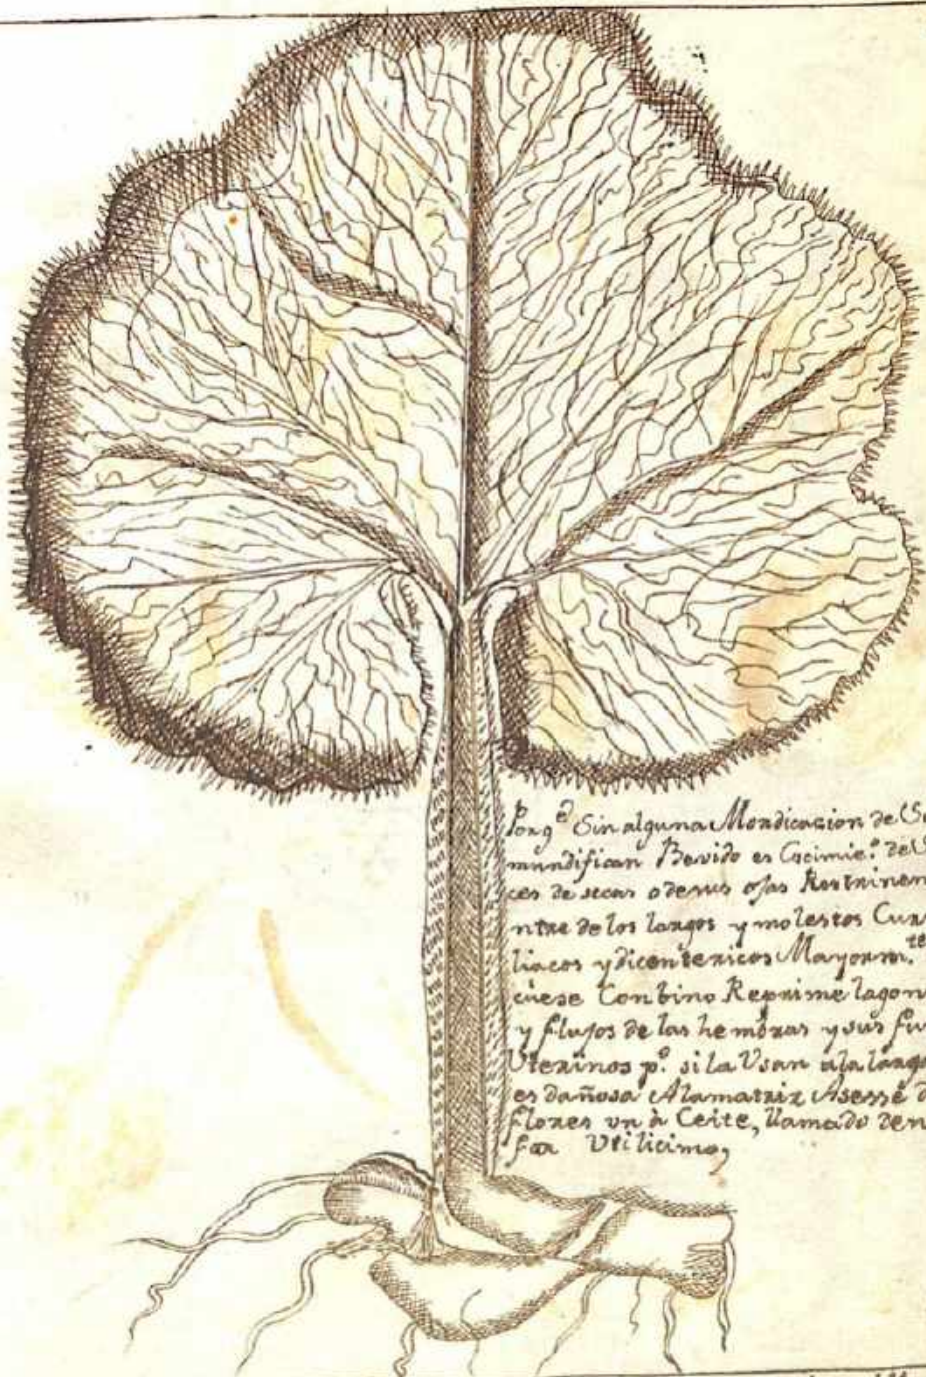 Porq.^e Sin alguna Mordicacion de
mundifican Bevido es Cocimie.^o de
ces de secas o de sus ojas Restrinen
ntre de los largos y molestos Cur
liacos y dicentericos Mayorm.^te
cuese Con bino Reprime lagon
y flujos de las hembras y sus flu
Uterinos p.^o si la Usan a la larga
es dañosa A la matriz Asesse d
flores un à Ceite, llamado nen
far Utilicimo,